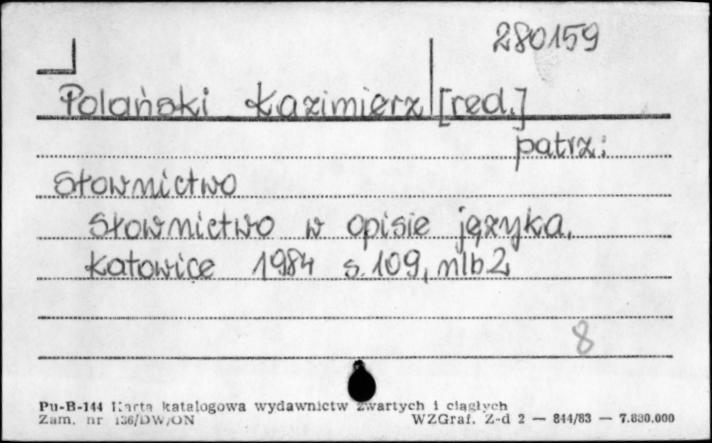 280159
Polański Kazimierz [red.]
patrz:
Słownictwo
Słownictwo w opisie języka.
Katowice 1984 s. 109, nlb 2
8
Pu-B-144 Karta katalogowa wydawnictw zwartych i ciągłych
Zam. nr 136/DW/ON WZGraf. Z-d 2 — 844/83 — 7.880.000